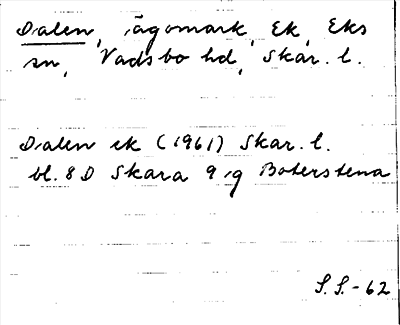 Dalen, ägomark, Ek, Eks
sn, Vadsbo hd, Skar. l.
Dalen ek (1961) Skar. l.
bl. 8 D Skara 9 ig Boterstena
S.S.-62